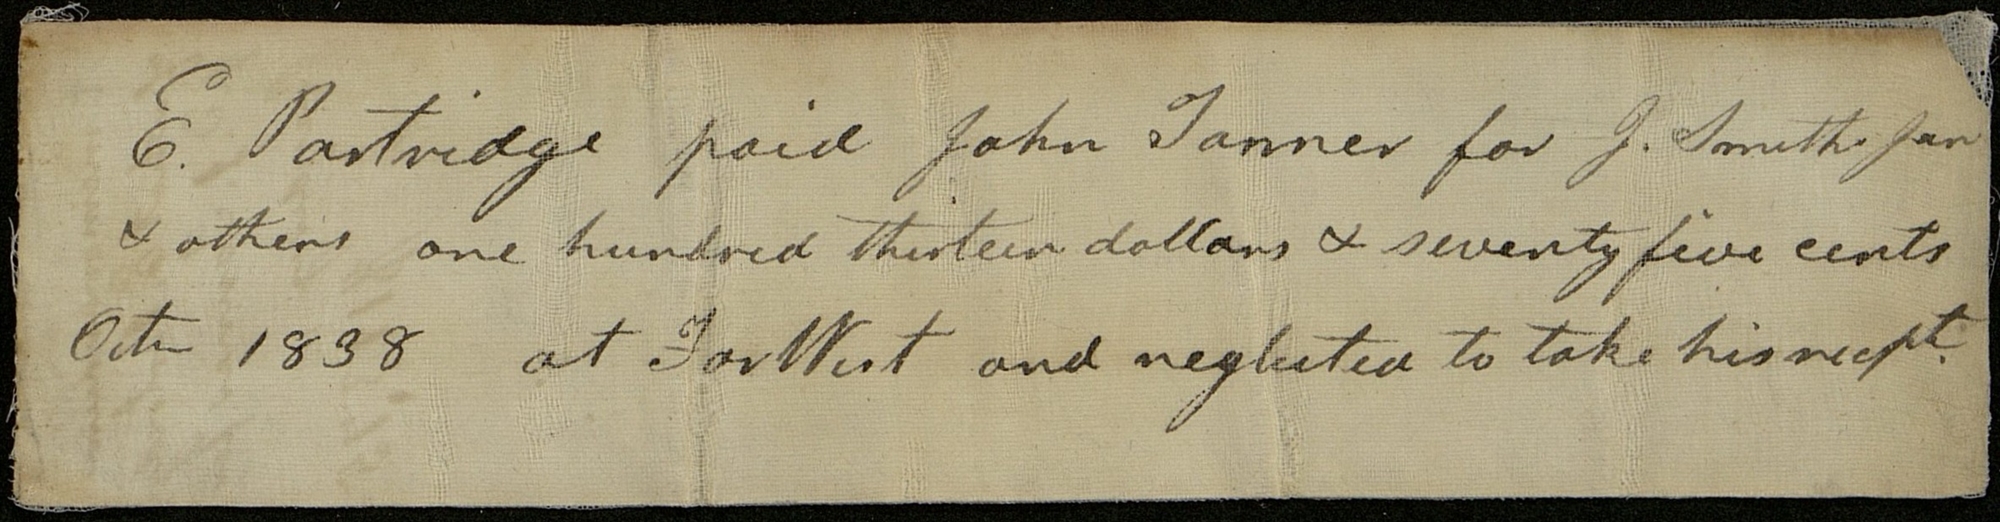 E. Partridge paid John Tanner for J. Smith Jun
& others one hundred thirteen dollars & seventy five cents
Octr 1838 at Far West and neglected to take his recpt.